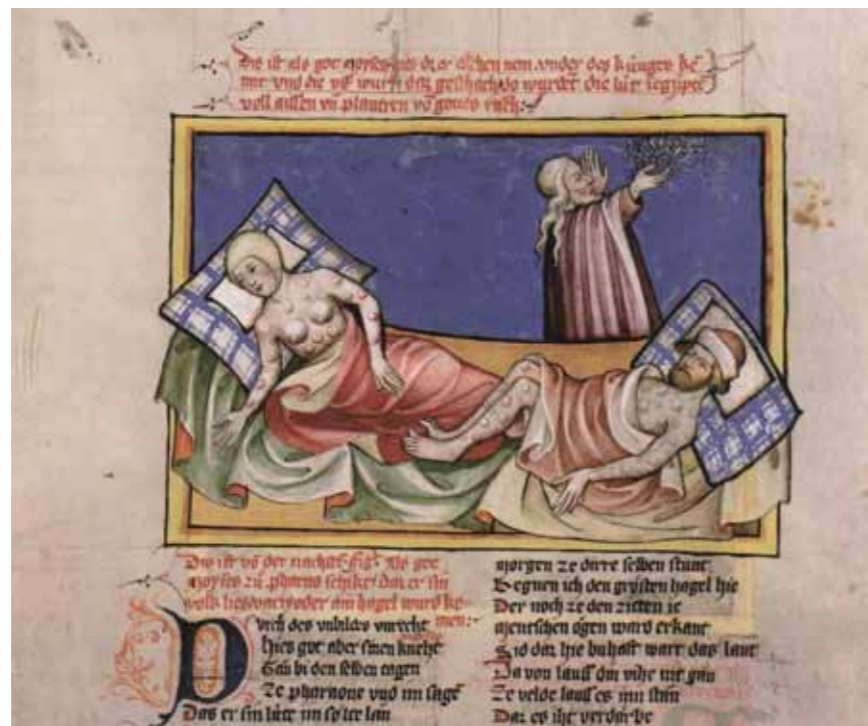 Dis ist als got moyses hies der eschen nem vnder des künges ke
mit vnd die vf wurf daz geschach do wurdent die lüt ze egipte
voll aissen vn platren vo gottes rach
Dis ist vo der nachsten als got
moyses zu pharao schiket daz er sin
volk lies varn oder ain hagel wurd ke
men
Durch des volkes vnrecht
hies got aber sinen kneht
Gan bi den selben tagen
Ze pharaone vnd im sagē
Das er sin lüte im solte lan
morgen ze dirre selben stunt
Segnen ich den grösten hagel hie
Der noch ze den ziten ie
mentschen ogen ward erkant
Sid daz hie buhaft wart das lant
Da von lauss din vihe nit gan
Ze velde lauss es inn stan
Daz es iht verdärbe